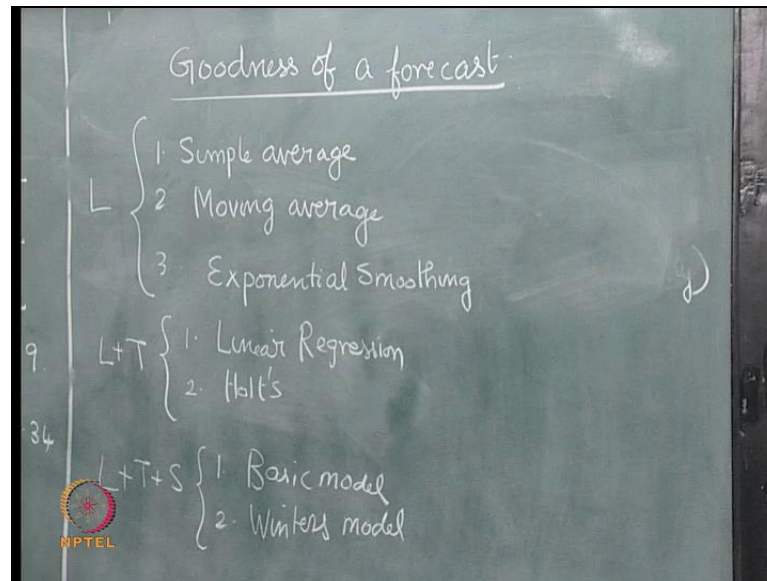 Goodness of a forecast
L
1. Simple average
2 Moving average
3. Exponential Smoothing
y)
9.
L+T
1. Linear Regression
2. Holt's
34
L+T+S
1. Basic model
2. Winters model
NPTEL